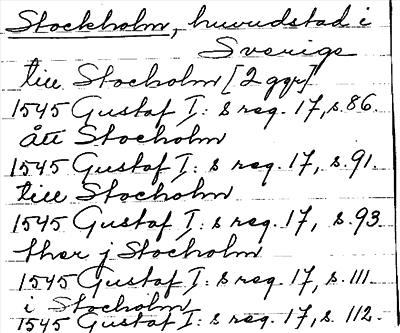 Stockholm, huvudstad i
Sverige
till Stocholm [2 ggr]
1545 Gustaf I:s reg. 17, s. 86.
ått Stocholm
1545 Gustaf I:s reg. 17, s. 91.
till Stocholm
1545 Gustaf I:s reg. 17, s. 93
ther j Stocholm
1545 Gustaf I:s reg. 17, s. 111
i Stocholm
1545 Gustaf I:s reg. 17, s. 112.